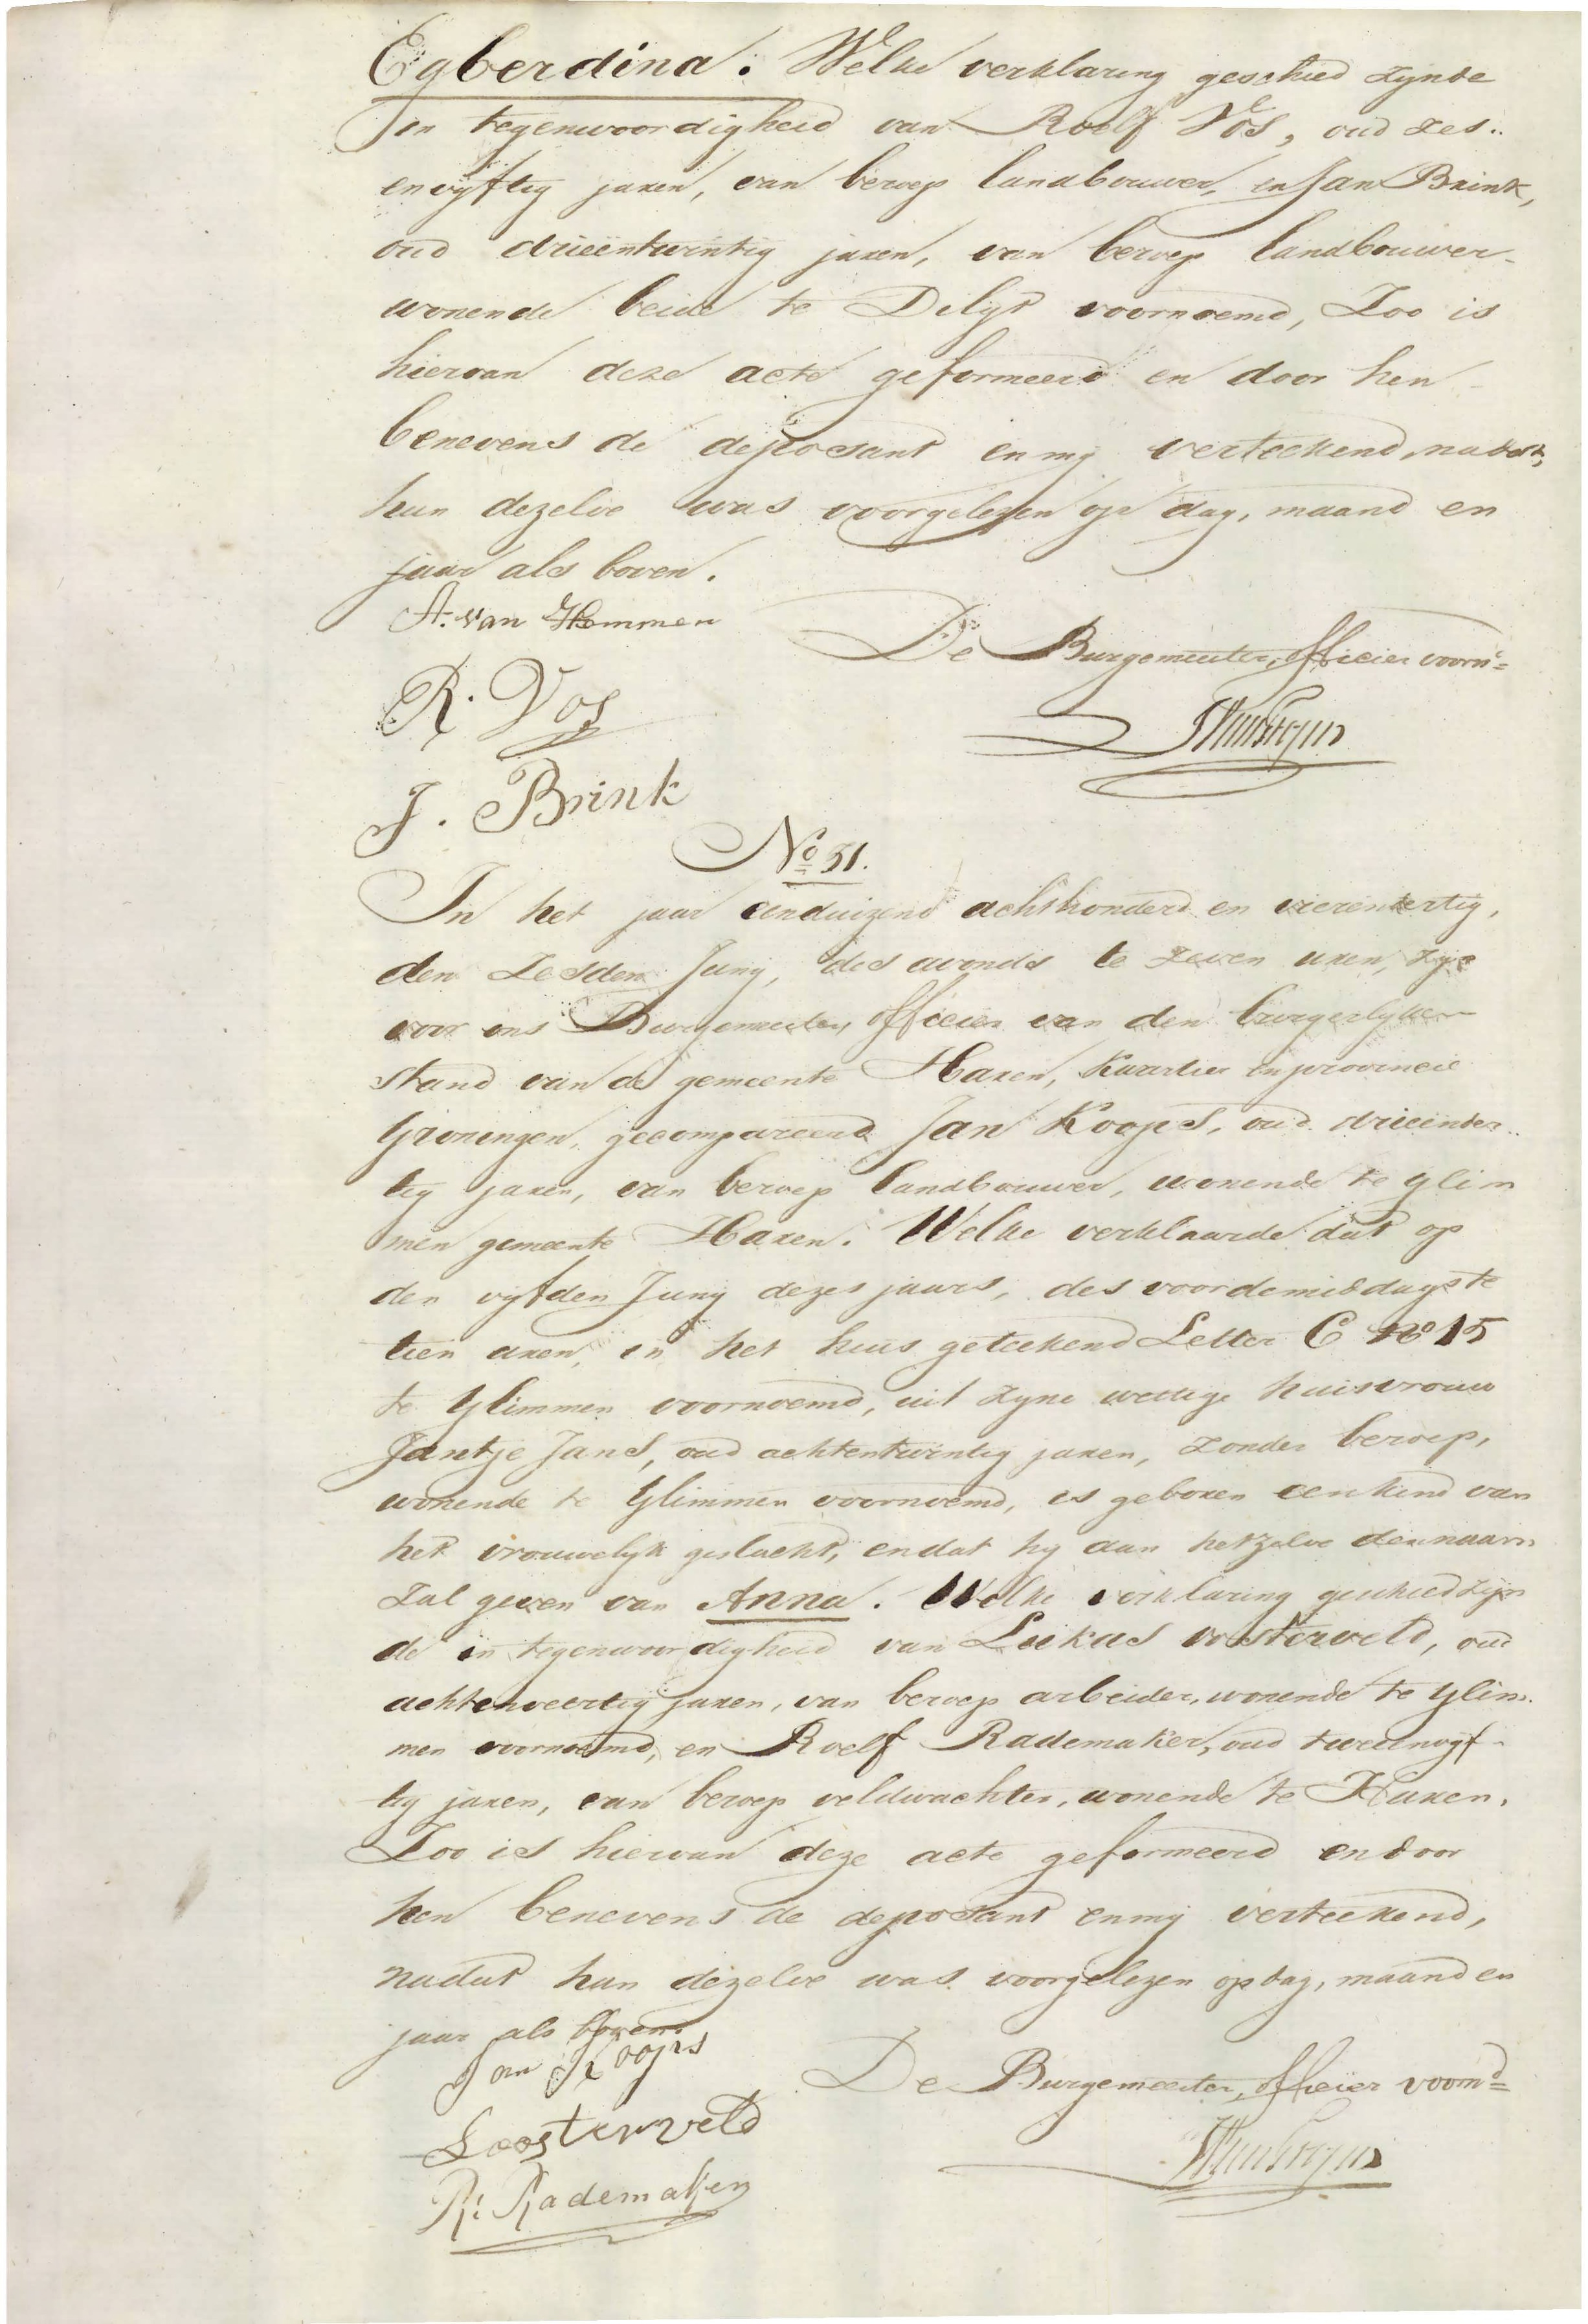 Egberdina. Welke verklaring geschied zynde
in tegenwoordigheid van Roelf Vos, oud zes..
envyftig jaren, van beroep landbouwer, en Jan Brink,
oud drieëntwintig jaren, van beroep landbouwer
wonende beide te Dilgt voornoemd, Zoo is
hiervan deze acte geformeerd en door hen
benevens de deposant en my verteekend, nadat,
hun dezelve was voorgelezen op dag, maand en
jaar als boven.
A. van Hemmen
De Burgemeester, officier voorn=
R. Vos
J. Brink
No 51.
In het jaar eenduizend achthonderd en vierendertig,
den Zesden Juny, des avonds te zeven uren, zyn
voor ons Burgemeester, officier van den burgerlyken
stand van de gemeente Haren, kwartier en provincie
Groningen, gecompareerd Jan Koops, oud drieënder..
tig jaren, van beroep landbouwer, wonende te Glim
men gemeente Haren. Welke verklaarde dat op
den vyfden Juny dezes jaars, des voordemiddags te
tien uren, in het huis geteekend Letter C No 15
te Glimmen voornoemd, uit zyne wettige huisvrouw
Jantje Jans, oud achtentwintig jaren, zonder beroep,
wonende te Glimmen voornoemd, is geboren een kind van
het vrouwelyk geslacht, en dat hy aan hetzelve den naam
zal geven van Anna. Welke verklaring geschied zyn
de in tegenwoordigheid van Lukas oosterveld, oud
achtenveertig jaren, van beroep arbeider, wonende te Glim.
men voornoemd, en Roelf Rademaker, oud tweeenvyf-
tig jaren, van beroep veldwachter, wonende te Haren.
Zoo is hiervan deze acte geformeerd en door
hen benevens de deposant en my verteekend,
nadat hun dezelve was voorgelezen op dag, maand en
jaar als boven.
Jan Koops
De Burgemeester, officier voornd=
L oosterveld
R: Rademaker